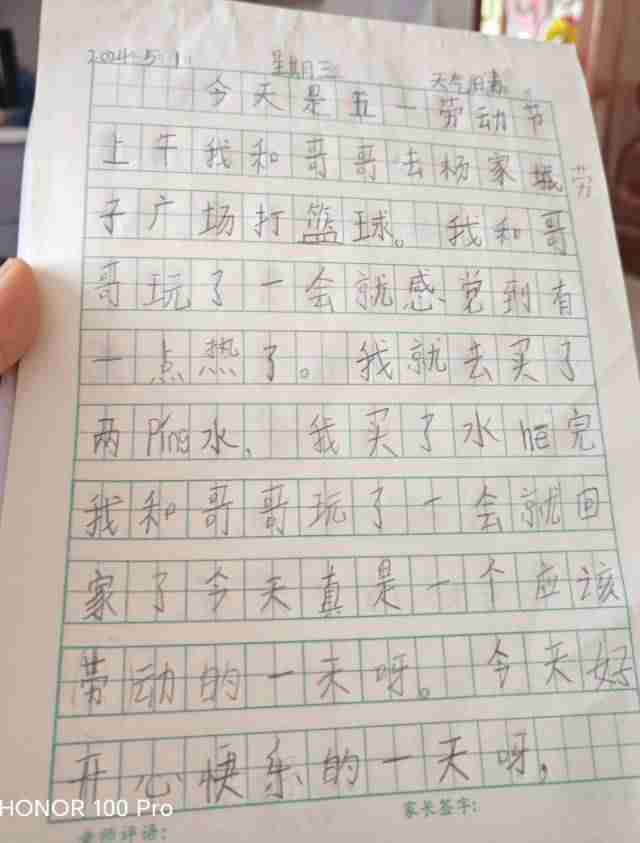 2024.5.1. 星期三 天气阳春。
今天是五一劳动节
上牛我和哥哥去杨家城
子广场打篮球。我和哥
哥玩了一会就感觉到有
一点热了。我就去买了
两Ping水,我买了水he完
我和哥哥玩了一会就回
家了今天真是一个应该
劳动的一天呀。今天好
开心快乐的一天呀,
HONOR 100 Pro
家长签字:
老师评语: